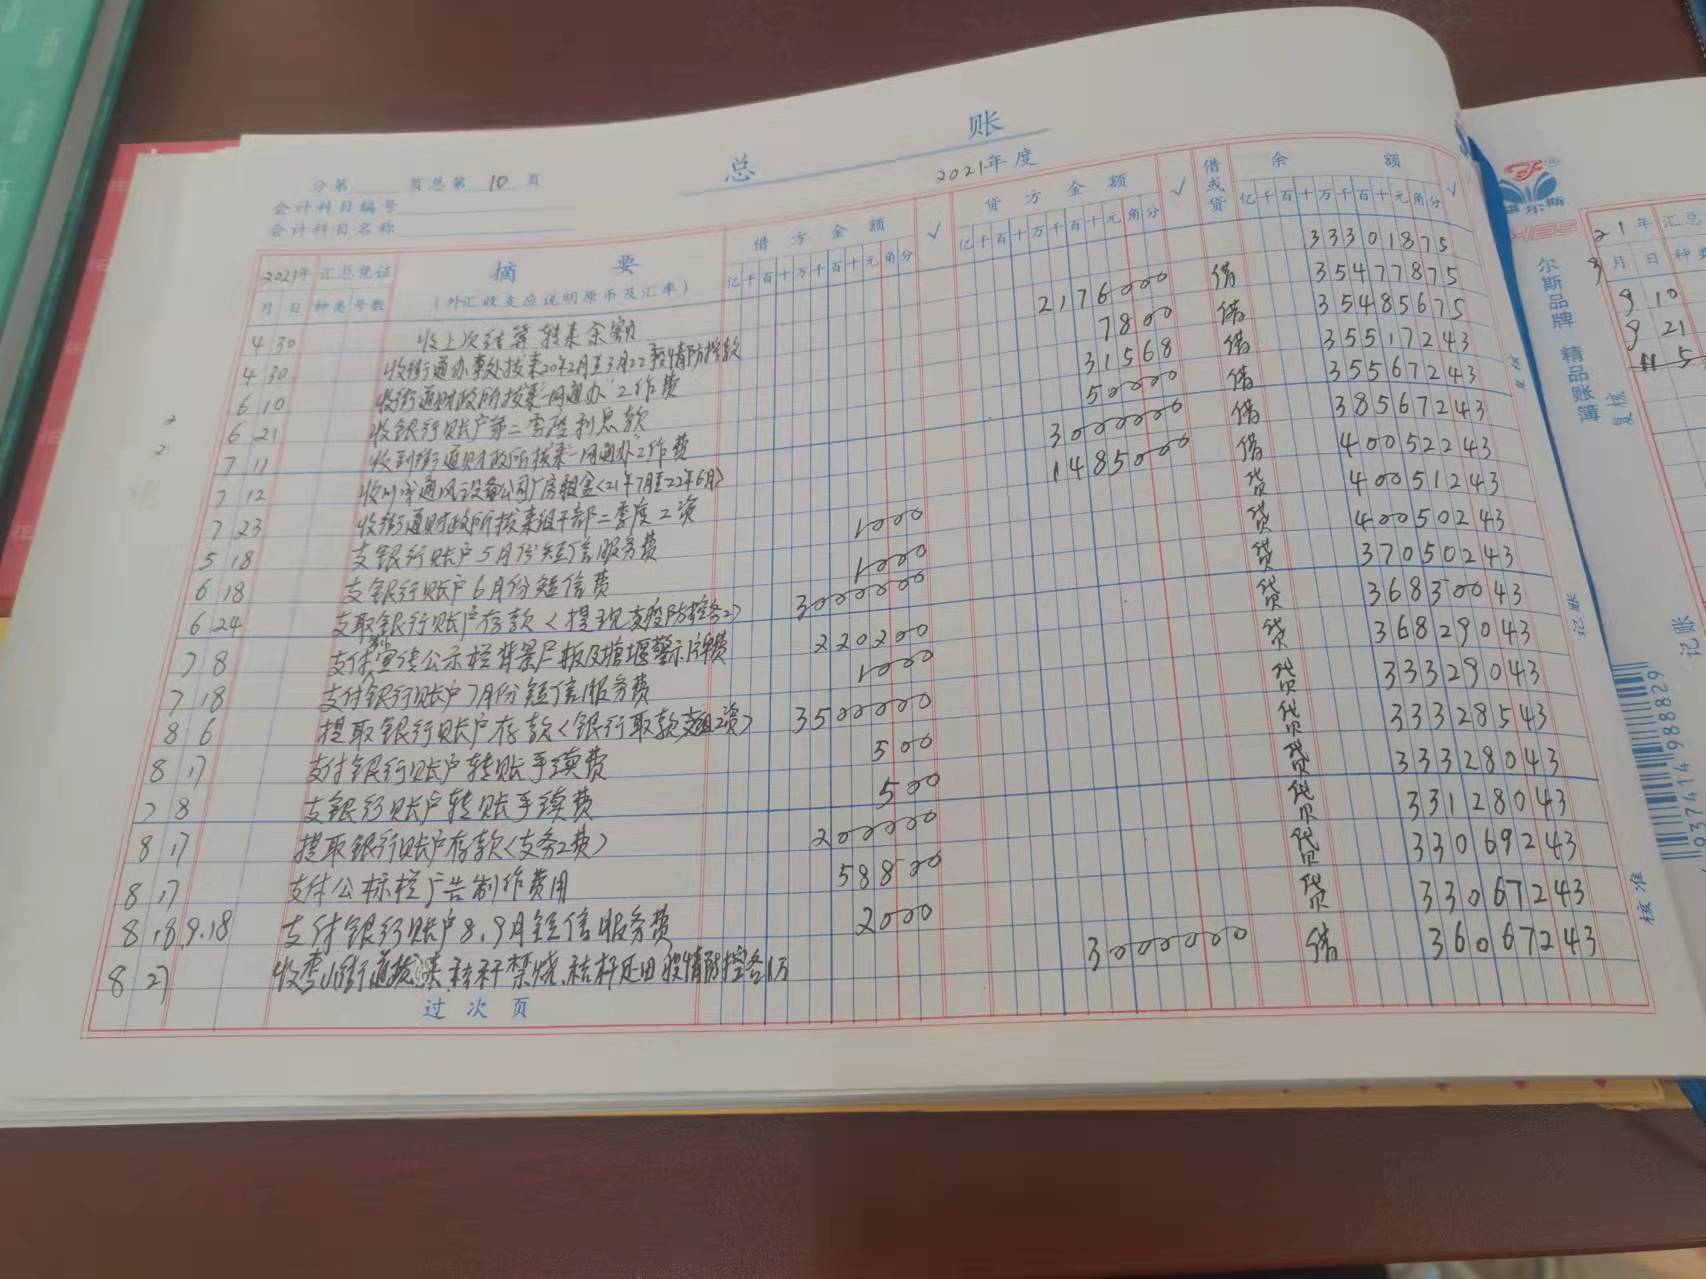 总 账
2021年度
分第 页总第 10 页
会计科目编号
会计科目名称
2021年 汇总凭证 摘要 借方金额 √ 贷方金额 √ 借或贷 余额 √
月 日 种类 号数 (外汇收支应说明原币及汇率) 亿千百十万千百十元角分 亿千百十万千百十元角分 亿千百十万千百十元角分
4 30 收上次结算转来余额 33301875
4 30 收街道办事处拨来20年2月至3月22疫情防控款 2176000 借 35477875
6 10 收街道财政所拨来一网通办"工作费 7800 借 35485675
6 21 收银行账户第二季度利息款 31568 借 35517243
7 11 收到街道财政所拨来一网通办"工作费 50000 借 35567243
7 12 收 通风设备公司厂房租金<21年7月至22年6月> 3000000 借 38567243
7 23 收街道财政所拨来组干部二季度工资 1485000 借 40052243
5 18 支银行账户5月份短信服务费 1000 贷 40051243
6 18 支银行账户6月份短信费 1000 贷 40050243
6 24 支取银行账户存款<提现支疫防控务工> 3000000 贷 37050243
7 8 支付宣传公示栏背景尸板及塘堰警示牌费 220200 贷 36830043
7 18 支付银行账户7月份短信服务费 1000 贷 36829043
8 6 提取银行账户存款<银行取款支组工资> 3500000 贷 33329043
8 17 支付银行账户转账手续费 500 贷 33328543
7 8 支银行账户转账手续费 500 贷 33328043
8 17 提取银行账户存款<支务工费> 200000 贷 33128043
8 17 支付公标栏广告制作费用 58800 贷 33069243
8.18.9.18 支付银行账户8、9月短信服务费 2000 贷 33067243
8 27 收 山街道拨来秸秆禁烧、秸秆还田疫情防控各1万 3000000 借 36067243
过次页
复核
记账
核准
尔斯品牌 精品账簿
6937414988829
21年 汇总
月 日 种类
9 10
9 21
11 5
复核
记账